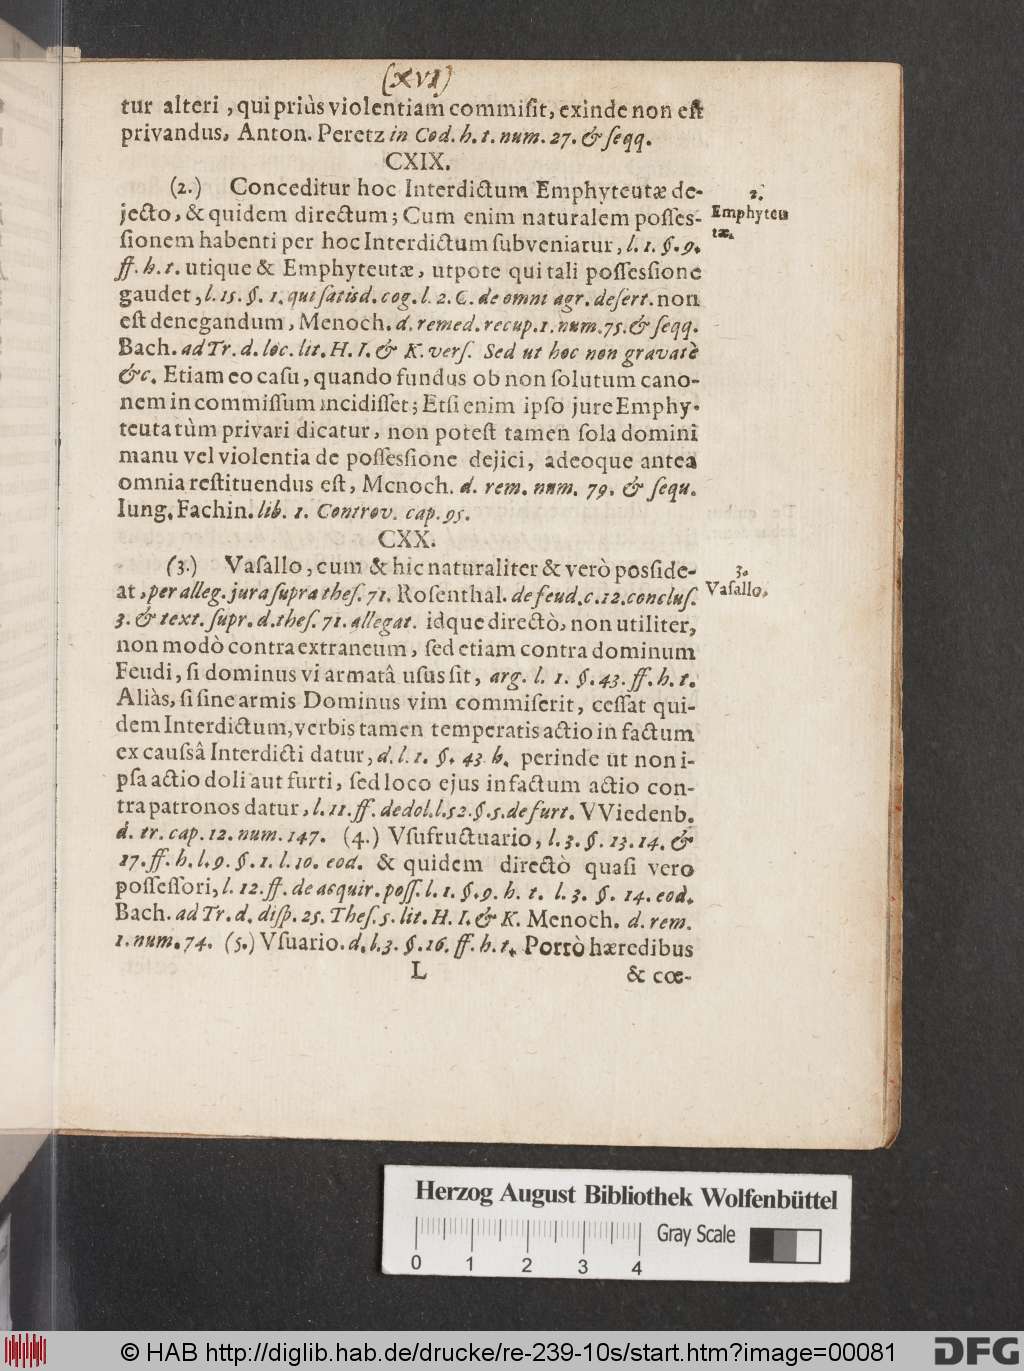 (xvi)
tur alteri, qui priùs violentiam commiſit, exinde non eſt
privandus, Anton. Peretz in Cod. h. t. num. 27. & ſeqq.
CXIX.
(2.) Conceditur hoc Interdictum Emphyteutæ de-
jecto, & quidem directum; Cum enim naturalem poſſeſ-
ſionem habenti per hoc Interdictum ſubveniatur, l. 1. §. 9.
ff. h. t. utique & Emphyteutæ, utpote qui tali poſſeſſione
gaudet, l. 15. §. 1. qui ſatisd. cog. l. 2. C. de omni agr. deſert. non
eſt denegandum, Menoch. d. remed. recup. 1. num. 75. & ſeqq.
Bach. ad Tr. d. loc. lit. H. I. & K. verſ. Sed ut hoc non gravatè
&c. Etiam eo caſu, quando fundus ob non ſolutum cano-
nem in commiſſum incidiſſet; Etſi enim ipſo jure Emphy-
teuta tùm privari dicatur, non poteſt tamen ſola domini
manu vel violentia de poſſeſſione dejici, adeoque antea
omnia reſtituendus eſt, Menoch. d. rem. num. 79. & ſequ.
Iung. Fachin. lib. 1. Controv. cap. 95.
CXX.
(3.) Vaſallo, cum & hic naturaliter & verò poſſide-
at, per alleg. jura ſupra theſ. 71. Roſenthal. de feud. c. 12. concluſ.
3. & text. ſupr. d. theſ. 71. allegat. idque directò, non utiliter,
non modò contra extraneum, ſed etiam contra dominum
Feudi, ſi dominus vi armatâ uſus ſit, arg. l. 1. §. 43. ff. h. t.
Aliàs, ſi ſine armis Dominus vim commiſerit, ceſſat qui-
dem Interdictum, verbis tamen temperatis actio in factum
ex cauſsâ Interdicti datur, d. l. 1. §. 43. h. perinde ut non i-
pſa actio doli aut furti, ſed loco ejus in factum actio con-
tra patronos datur, l. 11. ff. de dol. l. 52. §. 5. de furt. VViedenb.
d. tr. cap. 12. num. 147. (4.) Vſufructuario, l. 3. §. 13. 14. &
17. ff. h. l. 9. §. 1. l. 10. eod. & quidem directò quaſi vero
poſſeſſori, l. 12. ff. de acquir. poſſ. l. 1. §. 9. h. t. l. 3. §. 14. eod.
Bach. ad Tr. d. diſp. 25. Theſ. 5. lit. H. I. & K. Menoch. d. rem.
1. num. 74. (5.) Vſuario. d. l. 3. §. 16. ff. h. t. Porrò hæredibus
L & cœ-
2.
Emphyteu
tæ.
3.
Vaſallo.
Herzog August Bibliothek Wolfenbüttel
Gray Scale
0 1 2 3 4
© HAB http://diglib.hab.de/drucke/re-239-10s/start.htm?image=00081
DFG